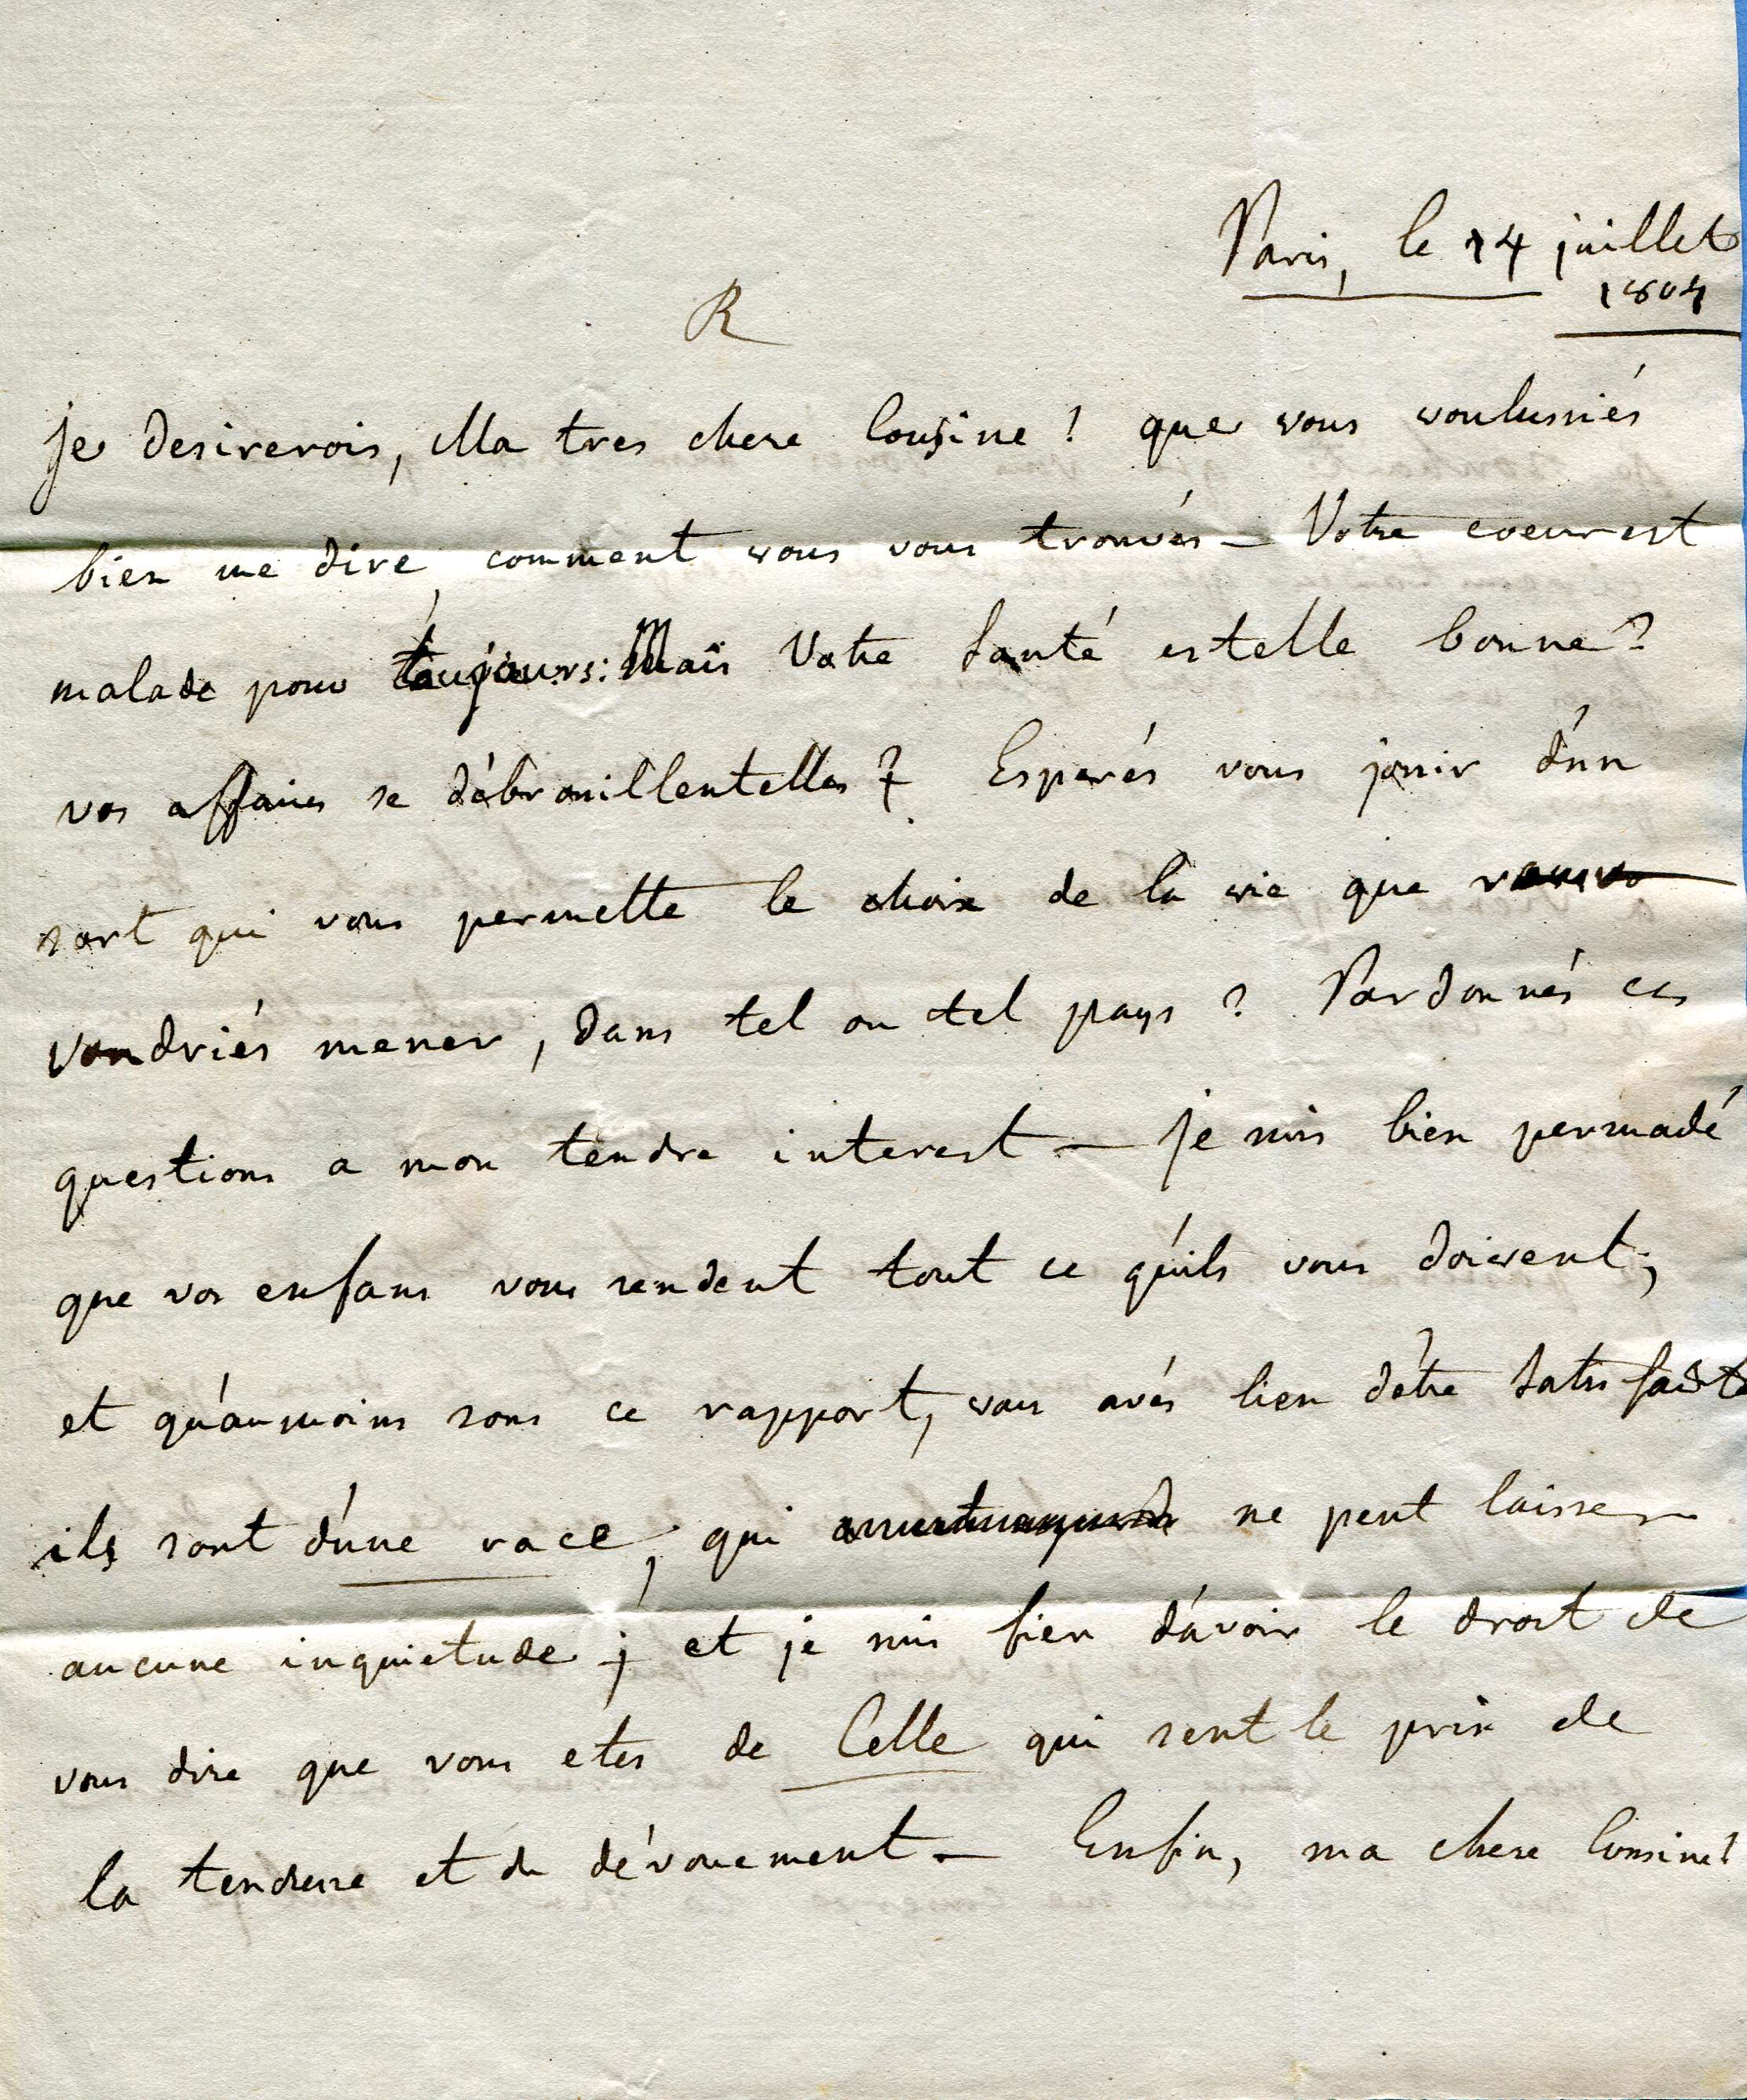 Paris, le 14 juillet
1804
R
je desirerois, Ma tres chere Cousine! que vous voulussiés
bien me dire, comment vous vous trouvés – Votre coeur est
malade pour toujours: Mais Votre Santé estelle bonne?
vos affaires se débrouillentelles? Esperés vous jouir d'un
sort qui vous permette le choix de la vie que
voudriés mener, dans tel ou tel pays? Pardonnés ces
questions a mon tendre interest – je suis bien persuadé
que vos enfans vous rendent tout ce qu'ils vous doivent;
et qu'aumoins sous ce rapport, vous avés lieu d'être Satisfaite
ils sont d'une race, qui ne peut laisser
aucune inquietude; et je suis fier d'avoir le droit de
vous dire que vous etes de Celle qui sent le prix de
la tendresse et du dévouement – Enfin, ma chere Cousine!